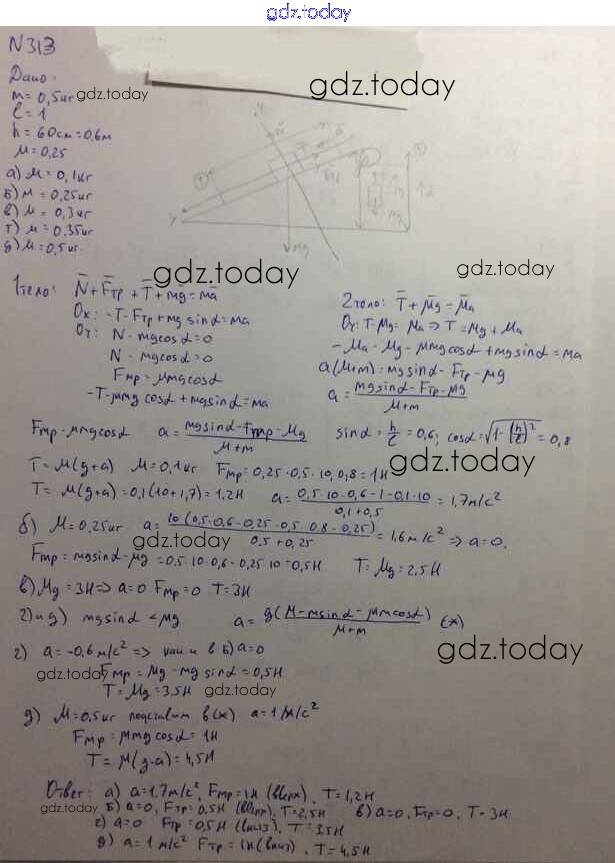 gdz.today
N313
Дано:
m = 0,5 кг
gdz.today
gdz.today
ℓ = 1
h = 60см = 0,6м
μ = 0,25
а) M = 0,1 кг
Б) M = 0,25 кг
в) M = 0,3 кг
г) M = 0,35 кг
д) M = 0,5 кг
mg
Mg
gdz.today
gdz.today
1 тело: N̄ + F̄тр + T̄ + mḡ = mā
Ox: -T - Fтр + mg sinα = ma
Oy: N - mgcosα = 0
N - mgcosα = 0
Fтр = μmgcosα
-T - μmg cosα + mgsinα = ma
2 тело: T̄ + M̄g = M̄a
Oy: T - Mg = Ma ⇒ T = Mg + Ma
-Ma - Mg - μmgcosα + mgsinα = ma
a(M+m) = mgsinα - Fтр - Mg
a = (mgsinα - Fтр - Mg)/(M+m)
Fтр = μmgcosα a = (mgsinα - Fтр - Mg)/(M+m) sinα = h/ℓ = 0,6; cosα = √(1-(h/ℓ)²) = 0,8
T = M(g+a) M = 0,1 кг Fтр = 0,25·0,5·10·0,8 = 1Н
gdz.today
T = M(g+a) = 0,1(10+1,7) = 1,2Н a = (0,5·10·0,6-1-0,1·10)/(0,1+0,5) = 1,7 м/с²
б) M = 0,25 кг a = 10(0,5·0,6-0,25·0,5·0,8-0,25)/(0,5+0,25) = 1,6 м/с² ⇒ a = 0.
gdz.today
Fтр = mgsinα - Mg = 0,5·10·0,6 - 0,25·10 = 0,5Н T = Mg = 2,5Н
в) Mg = 3Н ⇒ a = 0 Fтр = 0 T = 3Н
г) и д) mgsinα < Mg a = g(M - msinα - μmcosα)/(M+m) (*)
г) a = -0,6 м/с² ⇒ как и в Б) a = 0
gdz.today
gdz.today
Fтр = Mg - mg sinα = 0,5Н
T = Mg = 3,5Н
gdz.today
д) M = 0,5 кг подставим в (*) a = 1 м/с²
Fтр = μmgcosα = 1Н
T = M(g-a) = 4,5Н
gdz.today
Ответ: а) a = 1,7 м/с², Fтр = 1Н (вверх), T = 1,2Н
gdz.today
Б) a = 0, Fтр = 0,5Н (вверх), T = 2,5Н в) a = 0, Fтр = 0, T = 3Н
г) a = 0 Fтр = 0,5Н (вниз), T = 3,5Н
gdz.today
д) a = 1 м/с² Fтр = 1Н (вниз), T = 4,5Н